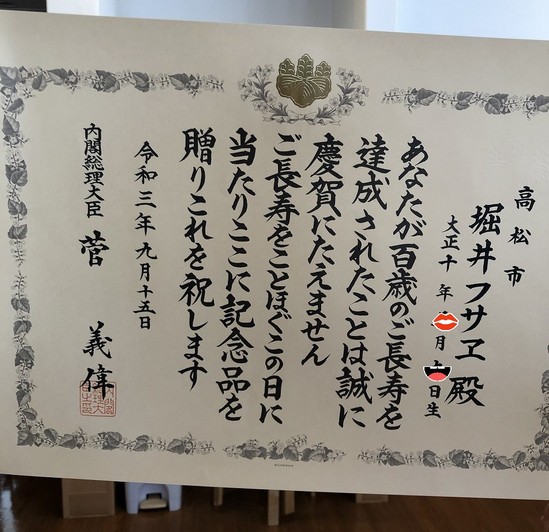 高松市
堀井フサヱ殿
大正十年 月 日生
あなたが百歳のご長寿を
達成されたことは誠に
慶賀にたえません
ご長寿をことほぐこの日に
当たりここに記念品を
贈りこれを祝します
令和三年九月十五日
内閣総理大臣 菅 義偉